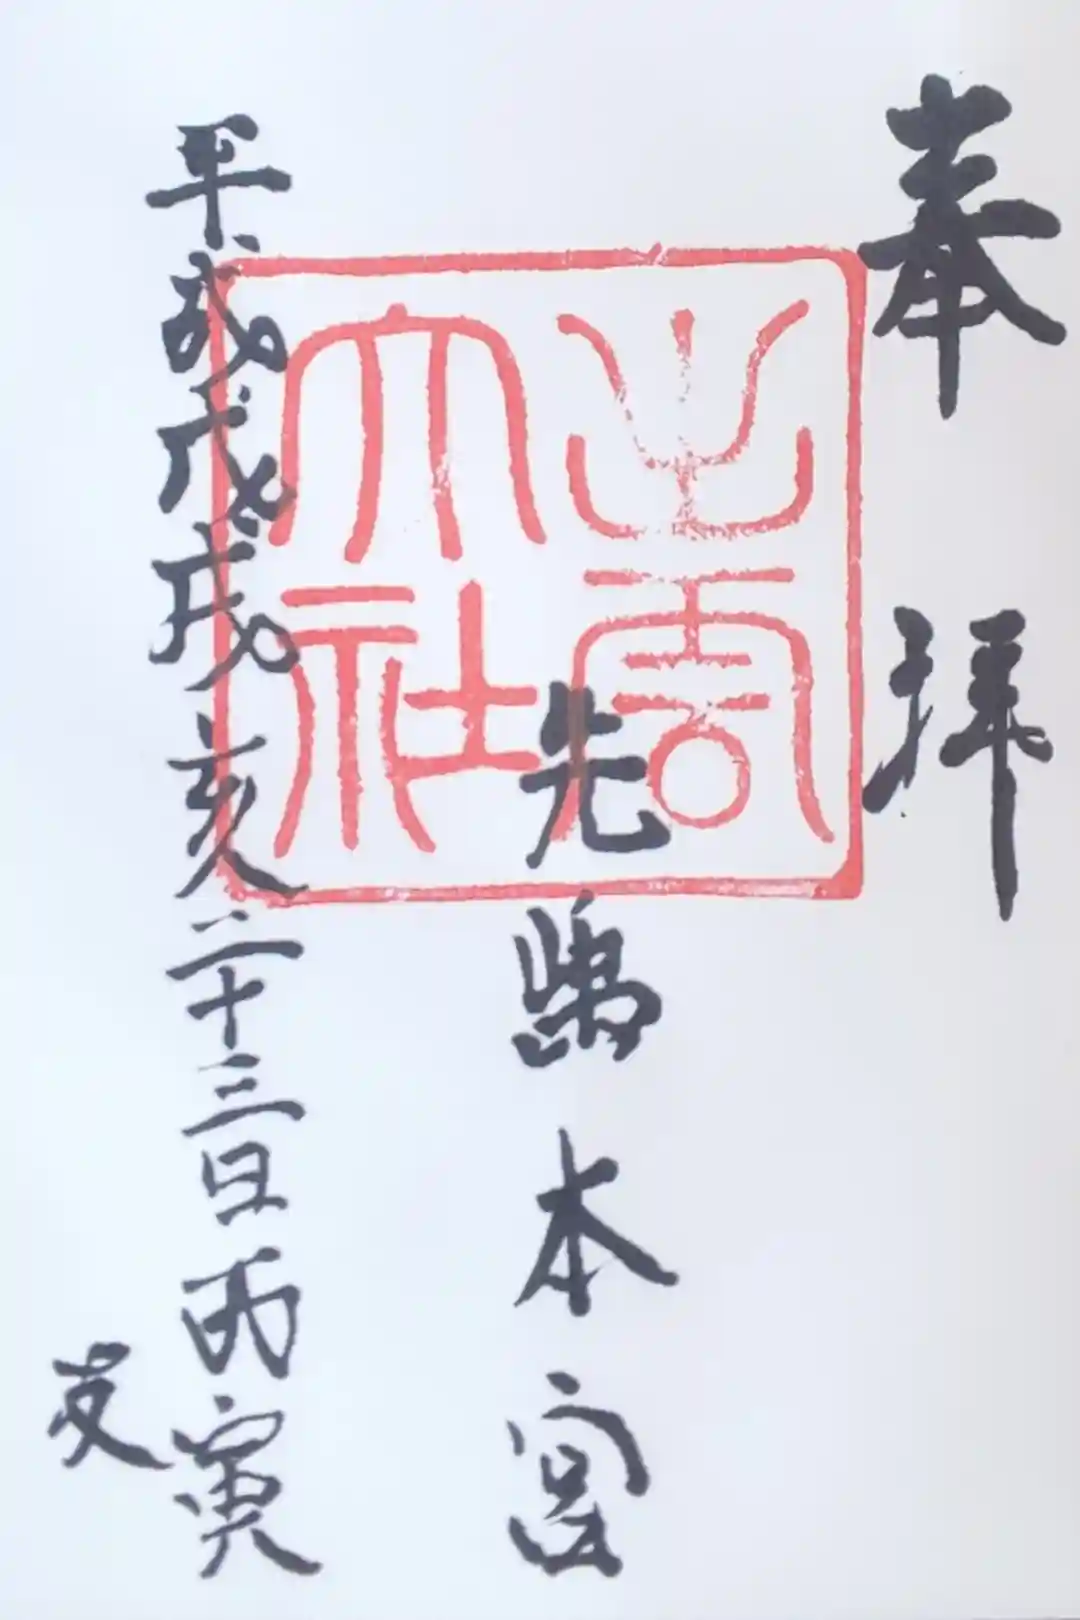 奉拝
出雲大社
先嶋本宮
平成戊戌亥二十三日丙寅
支